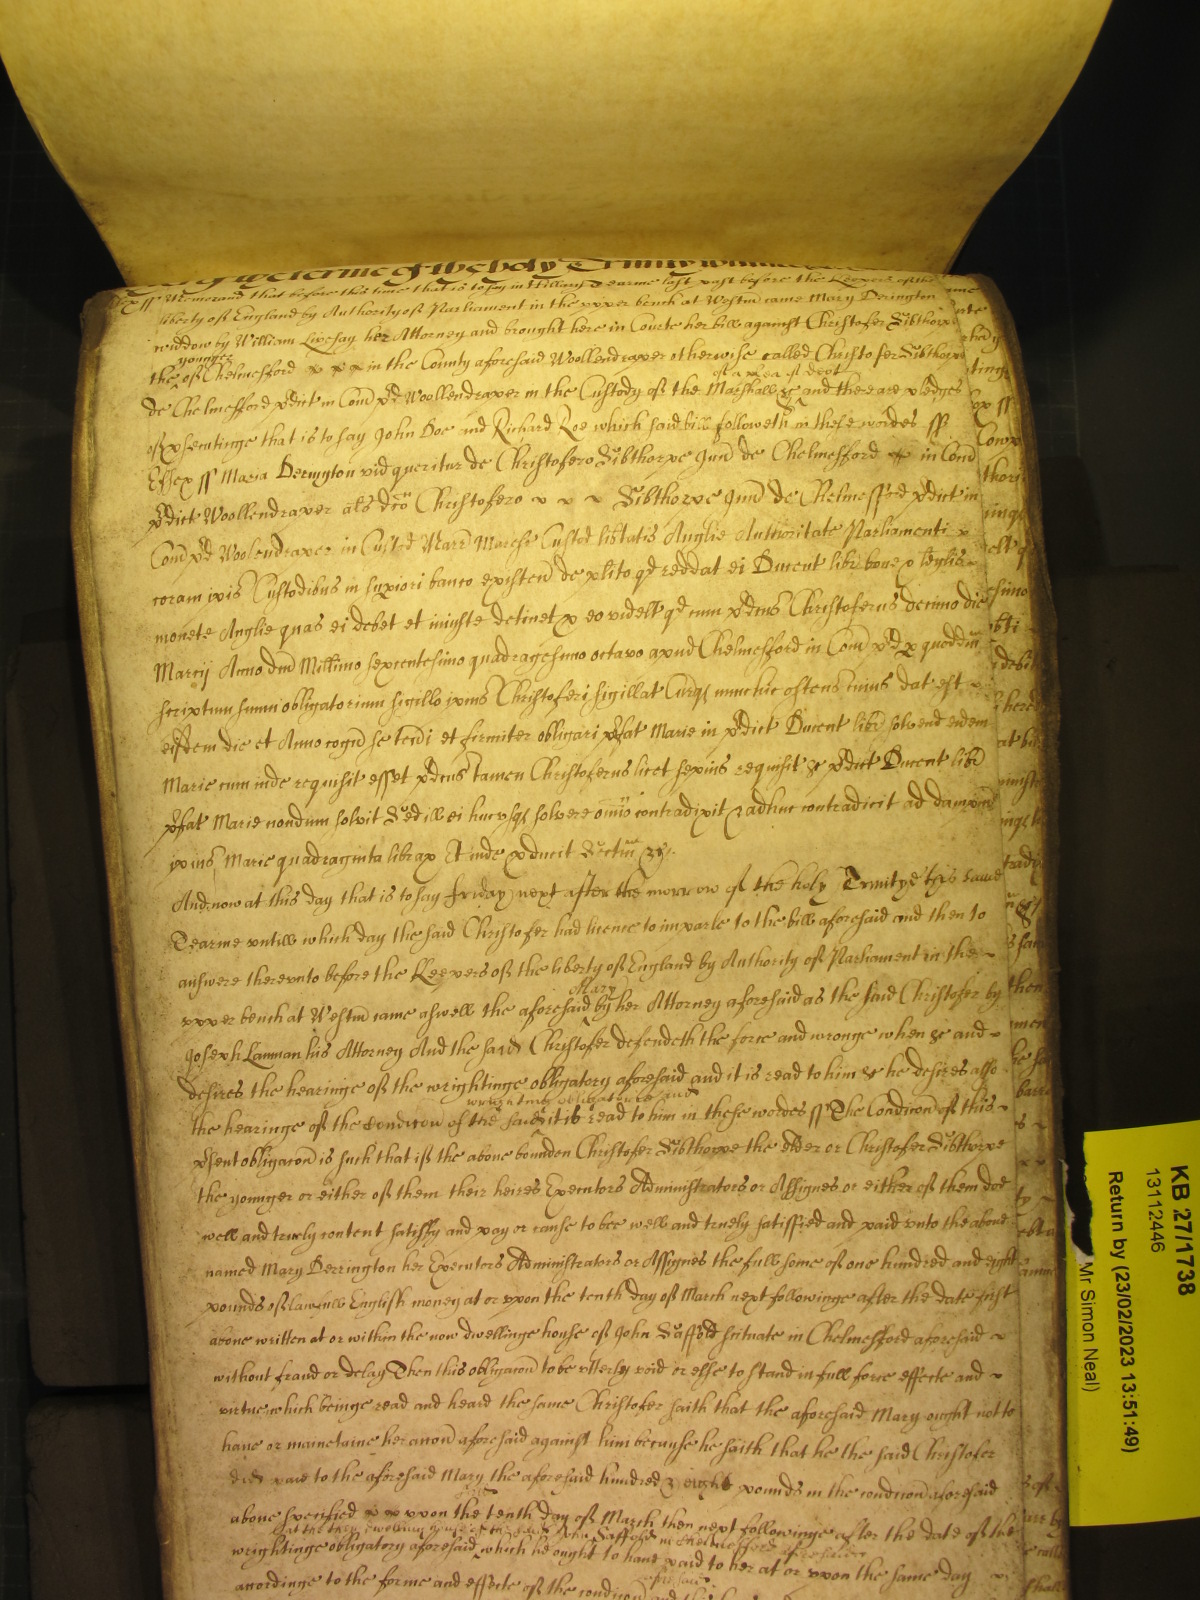 Essex ss Memorand that before this time that is to say in Hillary Tearme last past before the Keepers of the
liberty of England by Authority of Parliament in the upper bench at Westm came Mary Derington
widdow by William Livesay her Attorney and brought here in Courte her bill against Christofer Sibthorpe
younger
the of Chelmesford in the County aforesaid Woollendraper otherwise called Christofer Sibthorpe
of a plea of debt
de Chelmesford pdict in Com pd Woollendraper in the Custody of the Marshall &c and there are pledges
of psecutinge that is to say John Doe and Richard Roe which said bill followeth in these wordes ss
Essex ss Maria Derington vid queritur de Christofero Sibthorpe Jun de Chelmesford in Com
pdict Woollendraper als dco Christofero Sibthorpe Jun de Chelmesford pdict in
Com pd Woolendraper in Custod Marr Maresc Custod libtatis Anglie Authoritate Parliamenti
coram ipis Custodibus in supiori banco existen de plito qd reddat ei Ducent libr bone & legalis
monete Anglie quas ei debet et iniuste detinet p eo videlt qd cum pdcus Christoferus decimo die
Marcij Anno dni Millimo sexcentesimo quadragesimo octavo apud Chelmesford in Com pd p quoddm
scriptum suum obligatorium sigillo ipius Christoferi sigillat Curq nunc hic ostens cuius dat est
eisdem die et Anno cogn se teneri et firmiter obligari pfat Marie in pdict Ducent libr solvend eidem
Marie cum inde requisit esset pdcus tamen Christoferus licet sepius requisit &c pdict Ducent libr
pfat Marie nondum solvit Sed ill ei hucusq solvere omio contradixit & adhuc contradicit ad dampnu
ipius Marie quadraginta librar Et inde pducit sectm &c
And now at this day that is to say friday next after the morrow of the holy Trinitye this same
Tearme untill which day the said Christofer had licence to imparle to the bill aforesaid and then to
answere thereunto before the Keepers of the liberty of England by Authority of Parliament in the
Mary
upper bench at Westm came aswell the aforesaid by her Attorney aforesaid as the said Christofer by
Joseph Lanman his Attorney And the said Christofer defendeth the force and wronge when &c and
desires the hearinge of the wrightinge obligatory aforesaid and it is read to him &c he desires also
wrightinge obligatory and
the hearinge of the condicon of the said it is read to him in these wordes ss The Condicon of this
psent obligacon is such that if the above bounden Christofer Sibthorpe the elder or Christofer Sibthorpe
the younger or either of them their heires Executors Administrators or Assignes or either of them doe
well and truely content satisfy and pay or cause to bee well and truely satisfied and paid unto the above
named Mary Derrington her Executors Administrators or Assignes the full some of one hundred and eight
pounds of lawfull English money at or upon the tenth day of March next followinge after the date first
above written at or within the now dwellinge house of John Saffold scituate in Chelmesford aforesaid
without fraud or delay Then this obligacon to be utterly void or else to stand in full force effecte and
virtue which beinge read and heard the same Christofer saith that the aforesaid Mary ought not to
have or maineteine her accon aforesaid against him because he saith that he the said Christofer
did paie to the aforesaid Mary the aforesaid hundred & eight pounds in the condicon aforesaid
above specified upon the tenth day of March then next followinge after the date of the
at the then dwelling house of the said John Saffold in Chelmesford aforesaid
wrightinge obligatory aforesaid which he ought to have paid to her at or upon the same day
aforesaid
accordinge to the forme and effecte of the condicon
KB 27/1738
13112446
Return by (23/02/2023 13:51:49)
Mr Simon Neal)